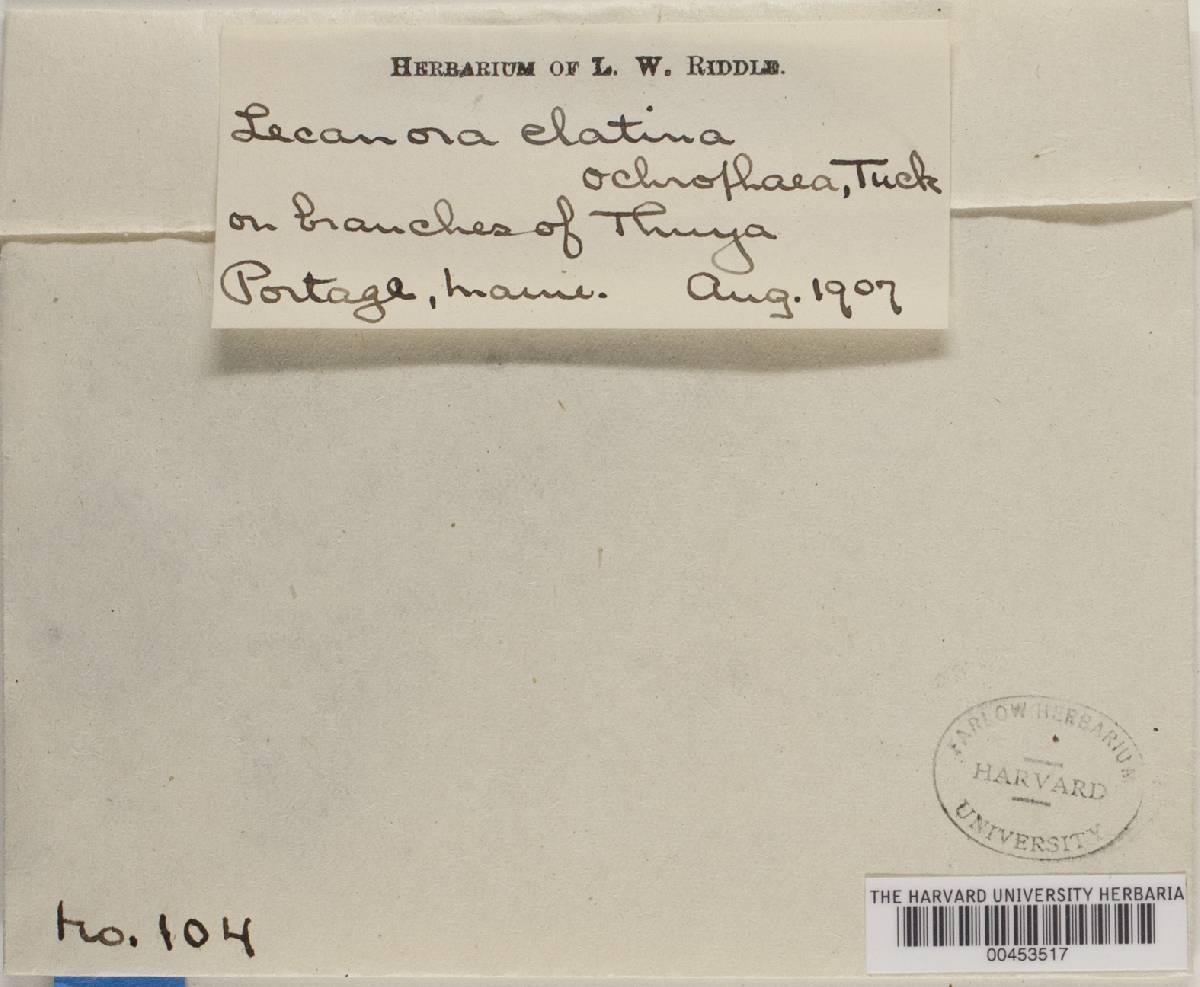 HERBARIUM OF L. W. RIDDLE.
Lecanora elatina
ochrophaea, Tuck
on branches of Thuya
Portage, Maine. Aug. 1907
FARLOW HERBARIUM
HARVARD
UNIVERSITY
THE HARVARD UNIVERSITY HERBARIA
00453517
No. 104